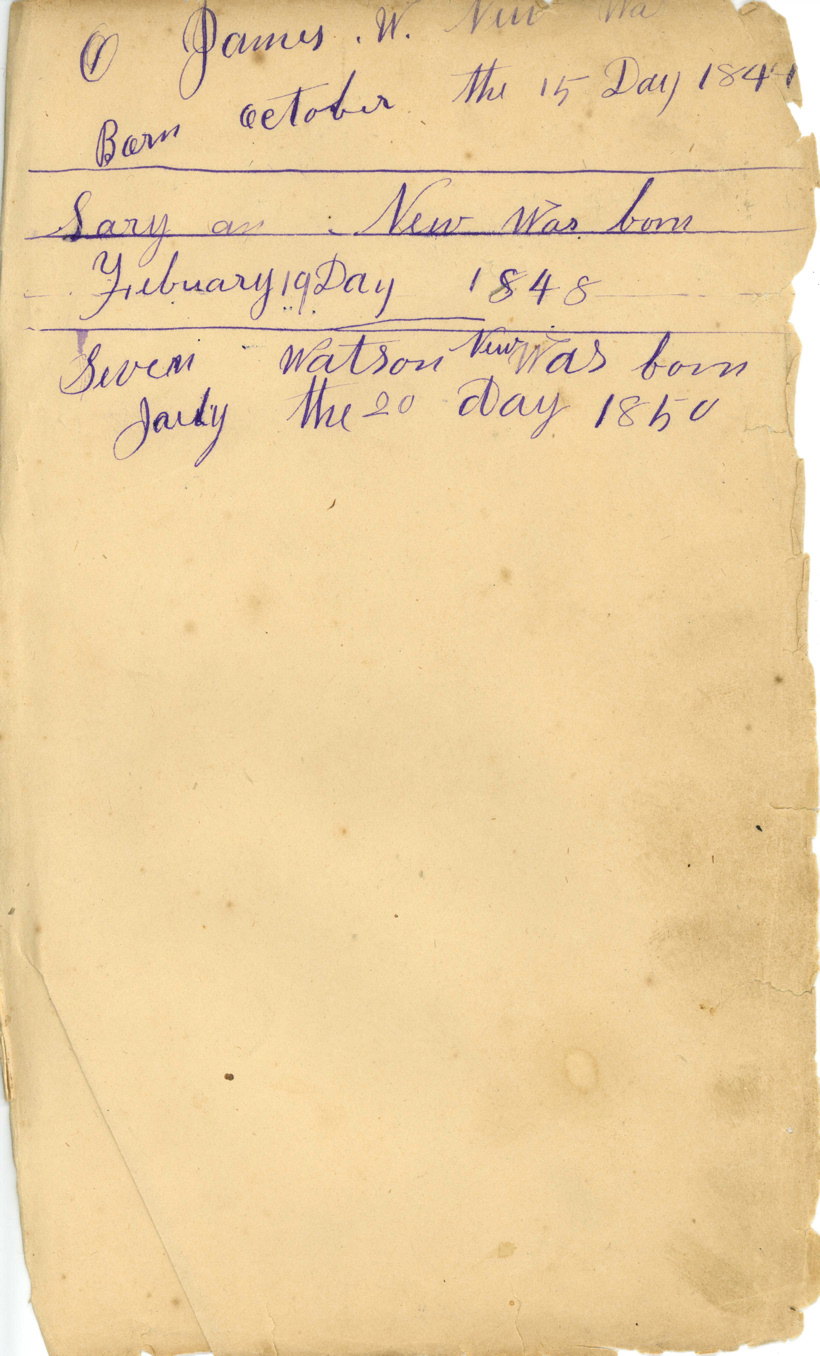 James . W. New Wa
Born October the 15 Day 1841
Sary an New Was born
Febuary 19 Day 1848
Seven Watson New Was born
the 20 Day 1850